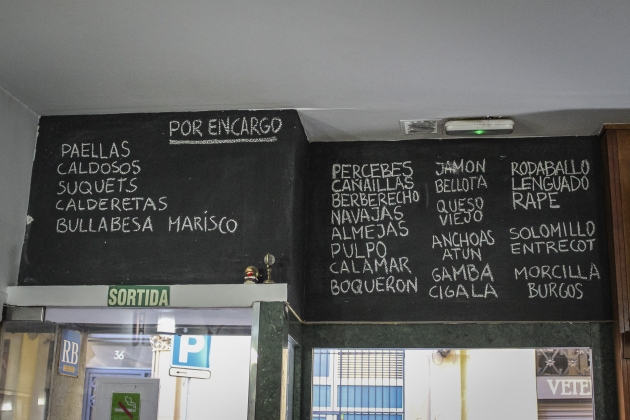 POR ENCARGO
PAELLAS
CALDOSOS
SUQUETS
CALDERETAS
BULLABESA MARISCO
PERCEBES
CAÑAILLAS
BERBERECHO
NAVAJAS
ALMEJAS
PULPO
CALAMAR
BOQUERON
JAMON
BELLOTA
QUESO
VIEJO
ANCHOAS
ATUN
GAMBA
CIGALA
RODABALLO
LENGUADO
RAPE
SOLOMILLO
ENTRECOT
MORCILLA
BURGOS
SORTIDA
RB
36
P
VETE